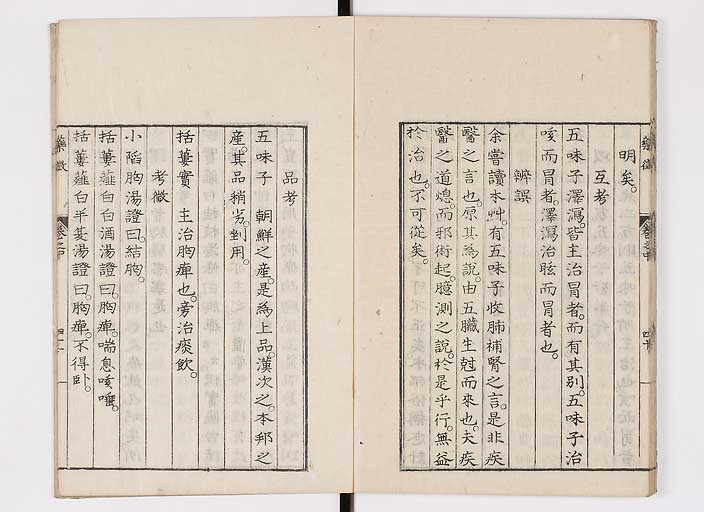 明矣。
互考
五味子澤瀉。皆主治冒者。而有其別。五味子治
咳而冒者。澤瀉治眩而冒者也。
辨誤
余嘗讀本艸。有五味子收肺補腎之言。是非疾
醫之言也。原其爲說。由五臟生尅而來也。夫疾
醫之道熄。而邪術起。臆測之說。於是乎行。無益
於治也。不可從矣。
藥徵
卷之中
四十
品考
五味子 朝鮮之產。是爲上品。漢次之。本邦之
產。其品稍劣。剉用。
括蔞實 主治胸痺也。旁治痰飲。
考徵
小陷胸湯證曰。結胸。
括蔞薤白白酒湯證曰。胸痺。喘息咳唾。
括蔞薤白半夏湯證曰。胸痺。不得卧。
藥徵
卷之中
四十一